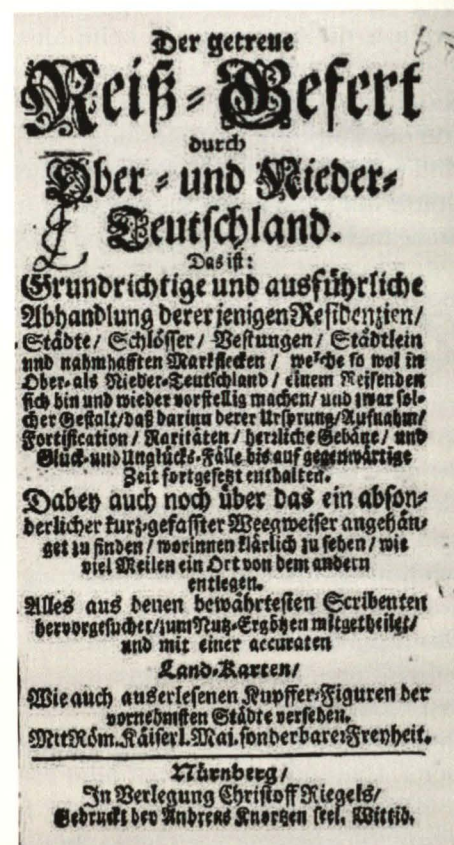 Der getreue
Reiß-Gefert
durch
Ober- und Nieder-
Teutschland.
Das ist:
Grundrichtige und ausführliche
Abhandlung derer jenigen Residenzien/
Städte/ Schlösser/ Vestungen/ Städtlein
und nahmhafften Marktflecken/ welche so wol in
Ober- als Nieder-Teutschland/ einem Reisenden
sich hin und wieder vorstellig machen/ und zwar sol-
cher Gestalt/ daß darinn derer Ursprung/ Aufnahm/
Fortification/ Raritäten/ herzliche Gebäue/ und
Glück- und Unglücks-Fälle bis auf gegenwärtige
Zeit fortgesetzt enthalten.
Dabey auch noch über das ein abson-
derlicher kurz-gefasster Weegweiser angehän-
get zu finden/ worinnen klärlich zu sehen/ wie
viel Meilen ein Ort von dem andern
entlegen.
Alles aus denen bewährtesten Scribenten
hervorgesuchet/ zum Nutz-Ergötzen mitgetheilet/
und mit einer accuraten
Land-Karten/
Wie auch auserlesenen Kupffer-Figuren der
vornehmsten Städte versehen.
Mit Röm. Käiserl. Maj. sonderbarer Freyheit.
Nürnberg/
In Verlegung Christoff Riegels/
Gedruckt bey Andreas Knortzen seel. Wittib.